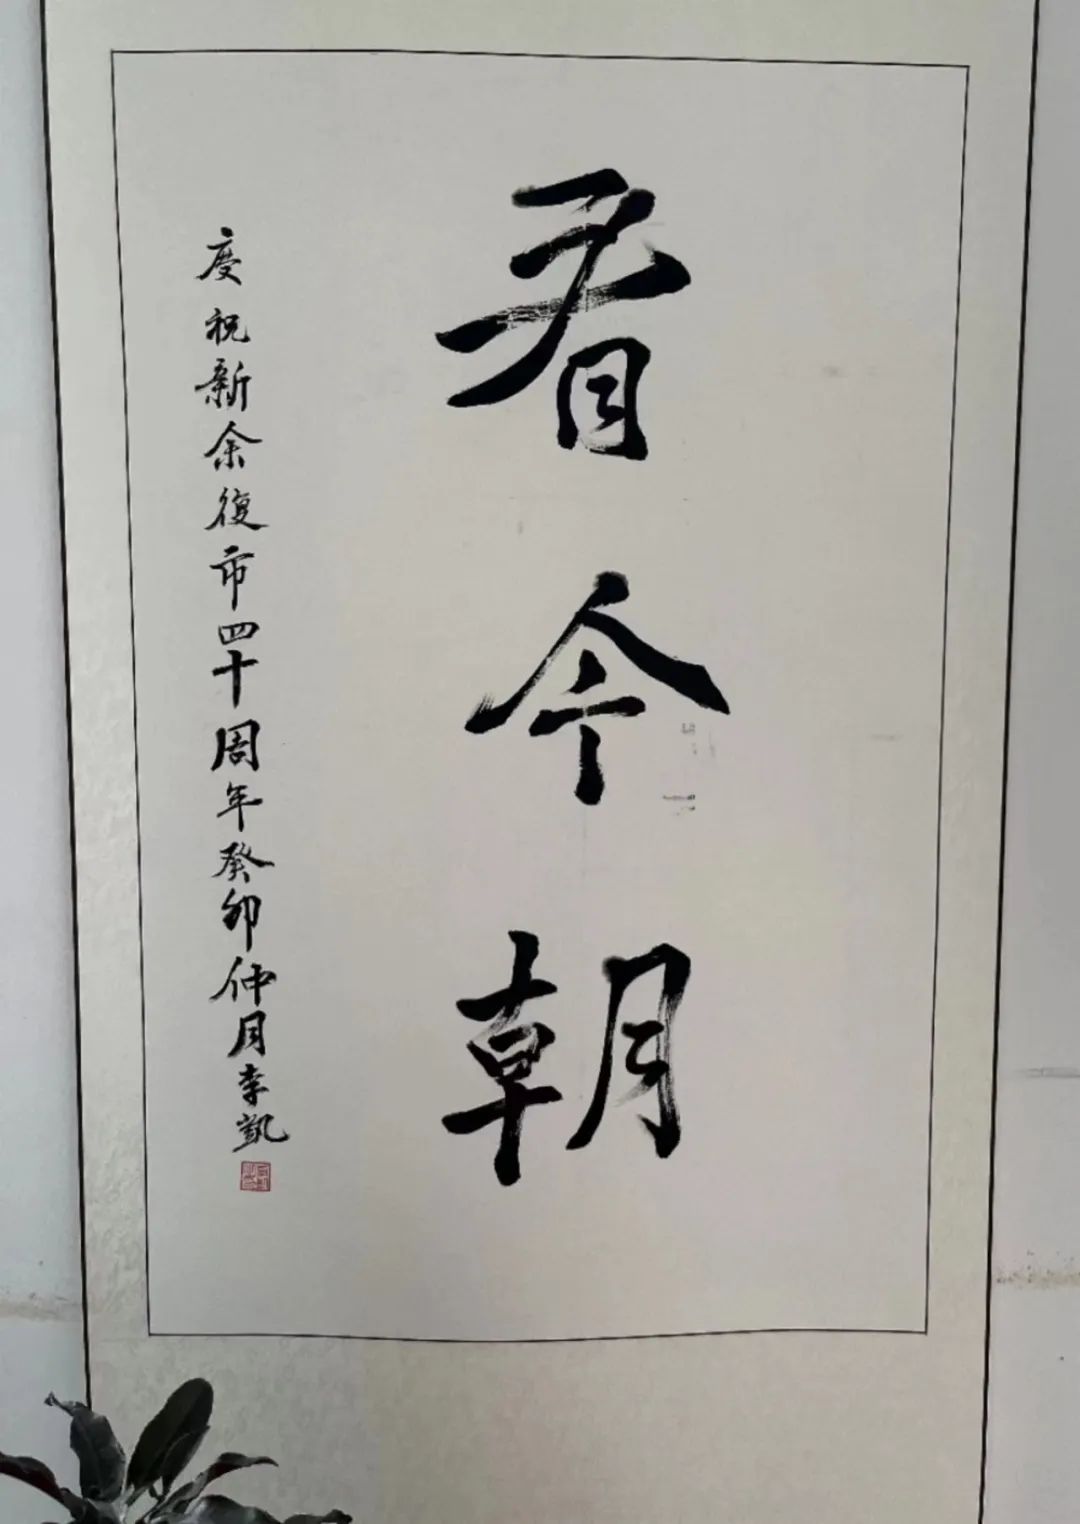 看今朝
庆祝新余復市四十周年癸卯仲月李凱